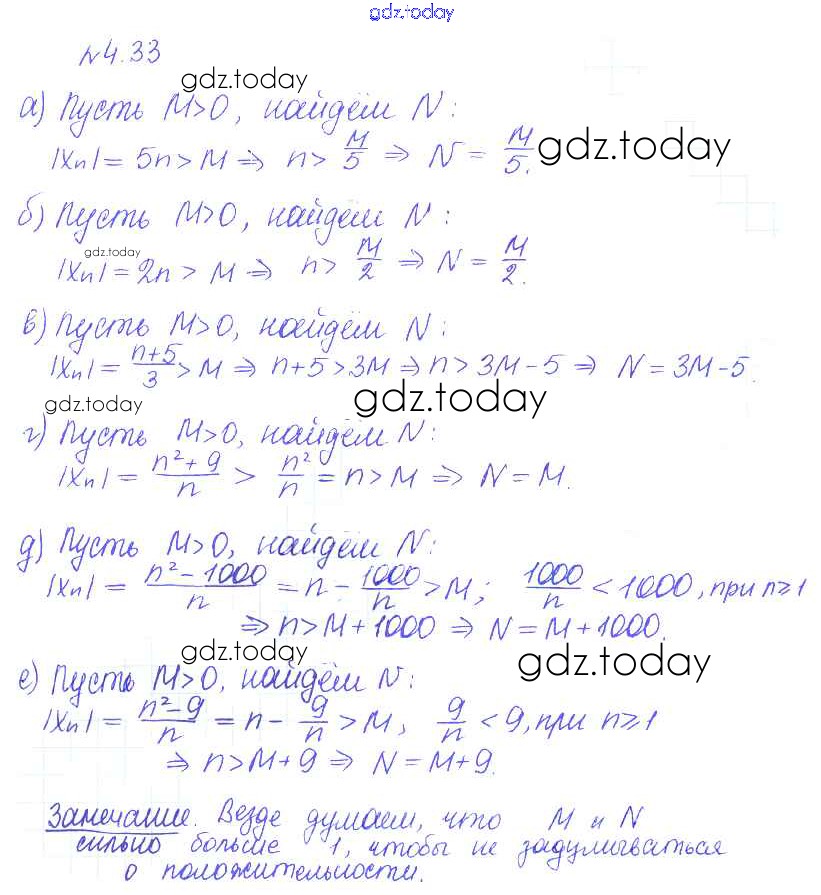 gdz.today
№4.33
gdz.today
а) Пусть M>0, найдём N:
|Xn| = 5n > M ⇒ n > M/5 ⇒ N = M/5.
gdz.today
б) Пусть M>0, найдём N:
gdz.today
|Xn| = 2n > M ⇒ n > M/2 ⇒ N = M/2.
в) Пусть M>0, найдём N:
|Xn| = (n+5)/3 > M ⇒ n+5 > 3M ⇒ n > 3M-5 ⇒ N = 3M-5.
gdz.today gdz.today
г) Пусть M>0, найдём N:
|Xn| = (n²+9)/n > n²/n = n > M ⇒ N = M.
д) Пусть M>0, найдём N:
|Xn| = (n²-1000)/n = n - 1000/n > M; 1000/n < 1000, при n≥1
⇒ n > M+1000 ⇒ N = M+1000.
gdz.today gdz.today
е) Пусть M>0, найдём N:
|Xn| = (n²-9)/n = n - 9/n > M, 9/n < 9, при n≥1
⇒ n > M+9 ⇒ N = M+9.
Замечание. Везде думаем, что M и N
сильно больше 1, чтобы не задумываться
о положительности.